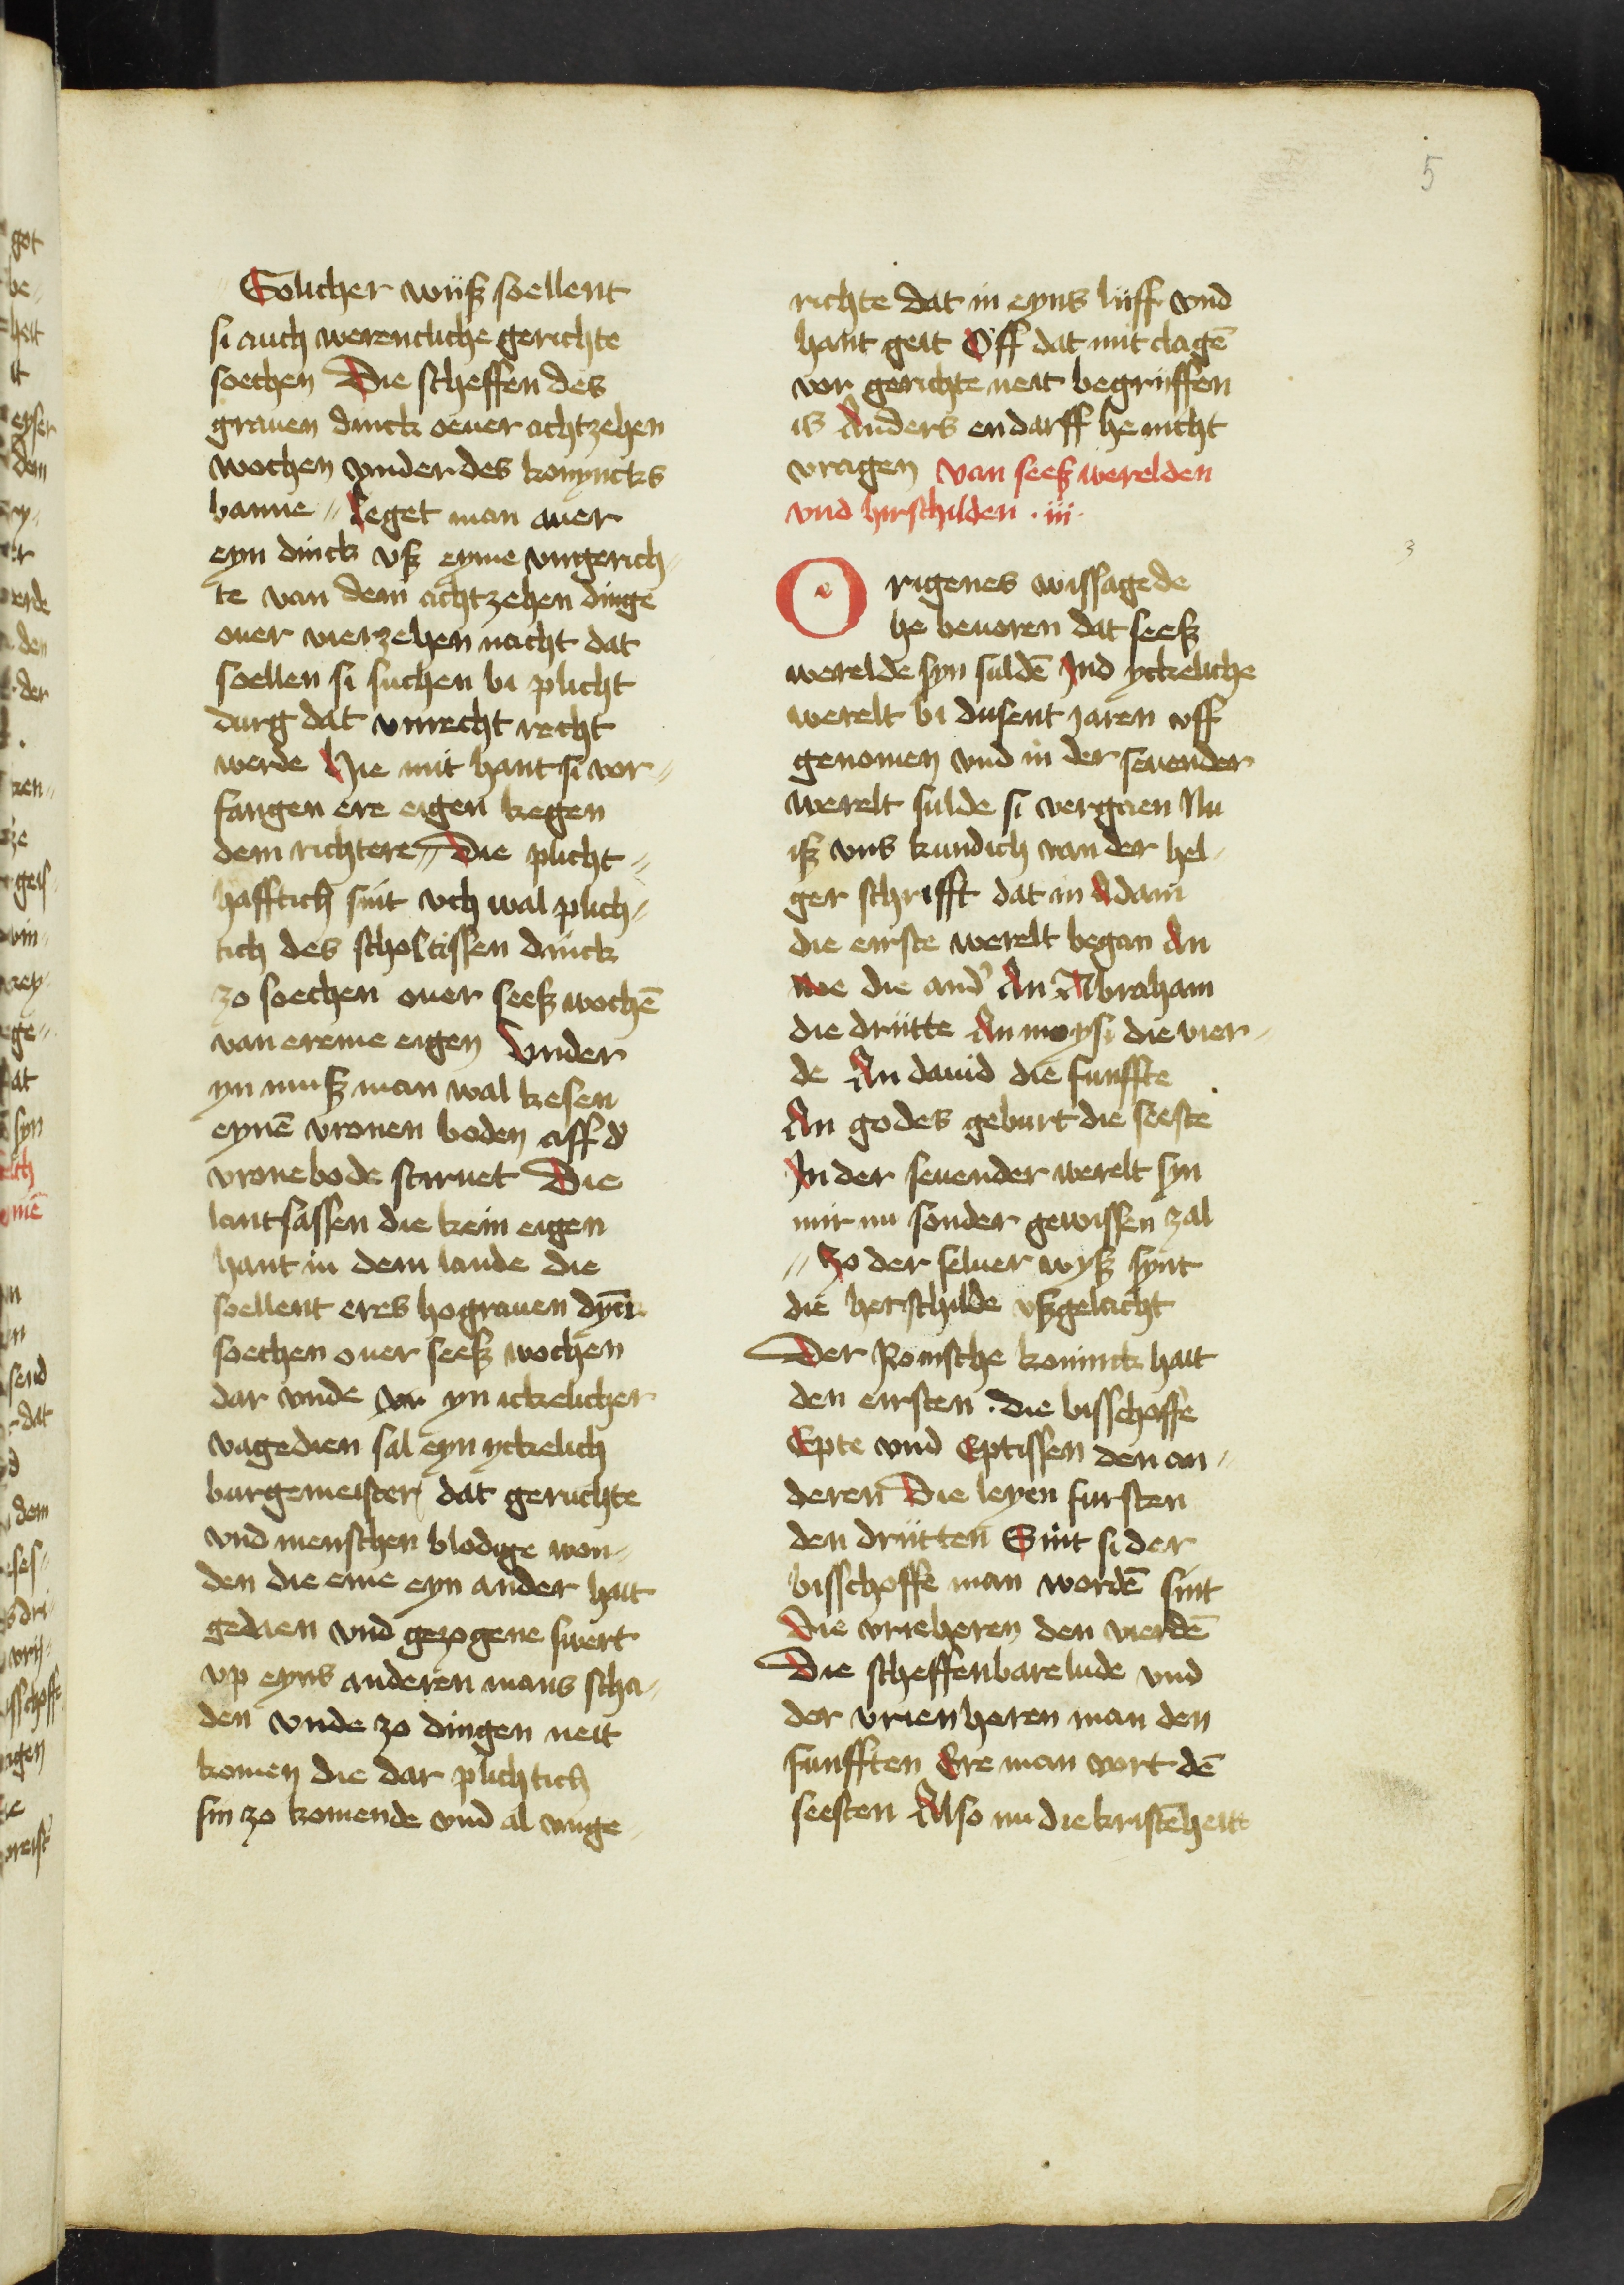 5
Solicher wijß soellent
si auch werentliche gerichte
soechen Die scheffen des
grauen dinck oeuer achtzehen
wochen vnder des konyncks
banne Leget man auer
eyn dinck vß eyme vngerich
te van dem achtzehen dinge
ouer vierzehen nacht dat
soellen si suchen bi plicht
durg dat vnrecht recht
werde Hie mit hant si vor
fangen ere eigen kegen
dem richtere Die plicht
hafftich sint och wal plich
tich des scholtissen dinck
zo soechen ouer seeß wochē
van ereme eigen Vnder
yn muß man wal kesen
eynē vronen boden aff d'
vronebode stiruet Die
lantsassen die kein eigen
hant in dem lande die
soellent eres hograuen dȳck
soechen ouer seeß wochen
dar vnde vor yn ickelicher
vagedien sal eyn yckelich
burgemeister dat geruchte
vnd menschen blodige won
den die eme eyn ander hait
gedaen vnd gezogene swert
vp eyns anderen mans scha
den vnde zo dingen neit
komen die dar plichtich
sin zo komende vnd al vnge
richte dat in eyns lijff vnd
hant geit Off dat mit clagē
vor gerichte neit begrijffen
is Anders en darff he nicht
vragen van seeß werelden
vnd hirschilden . iii .
3
Origenes wissagede
he beuoren dat seeß
werelde syn suldē Ind yckeliche
werelt bi dusent jaren vff
genomen vnd in der seuender
werelt sulde si vergaen Nu
iß vns kundich van der hel
ger schrifft dat in Adam
die eirste werelt began An
noe die and' An Abraham
die drijtte An moysi die vier
de An dauid die funffte
An godes geburt die seeste
In der seuender werelt syn
mir nu sonder gewissen zal
Zo der seluer wyß synt
die herschilde vßgelacht
Der Romsche koninck hait
den eirsten . die bisschoffe
Epte vnd Eptissen den an
deren Die leyen fursten
den drijtten Sint si der
bisschoffe man wordē sint
Die vrieheren den vierdē
Die scheffenbare lude vnd
der vrien heren man den
funfften Ere man vort dē
seesten Also nu die kristēheit